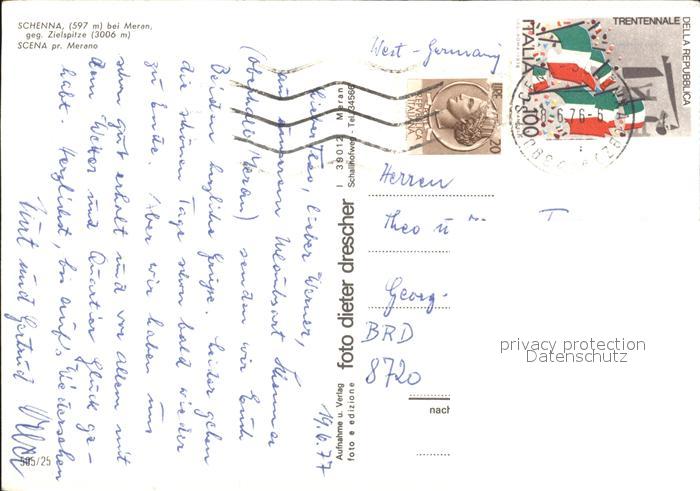 SCHENNA, (597 m) bei Meran,
geg. Zielspitze (3006 m)
SCENA pr. Merano
19.6.77
Lieber Theo, lieber Werner,
aus unserem Urlaubsort Schenna
(oberhalb Meran) senden wir Euch
Beiden herzliche Grüße. Leider gehen
die schönen Tage schon bald wieder
zu Ende. Aber wir haben uns
schon gut erholt und vor allem mit
dem Wetter und Quartier Glück ge-
habt. Herzlichst, bis auf's Wiedersehen
Kurt und Gertrud
505/25
Aufnahme u. Verlag
foto e edizione
foto dieter drescher
I 39012 Meran
Schallhofweg - Tel. 34566
West-Germany
LIRE 20
TRENTENNALE
DELLA REPUBBLICA
ITALIA
100
8.6.76-
Herren
Theo u
T
Georg-
BRD
8720
nach
privacy protection
Datenschutz